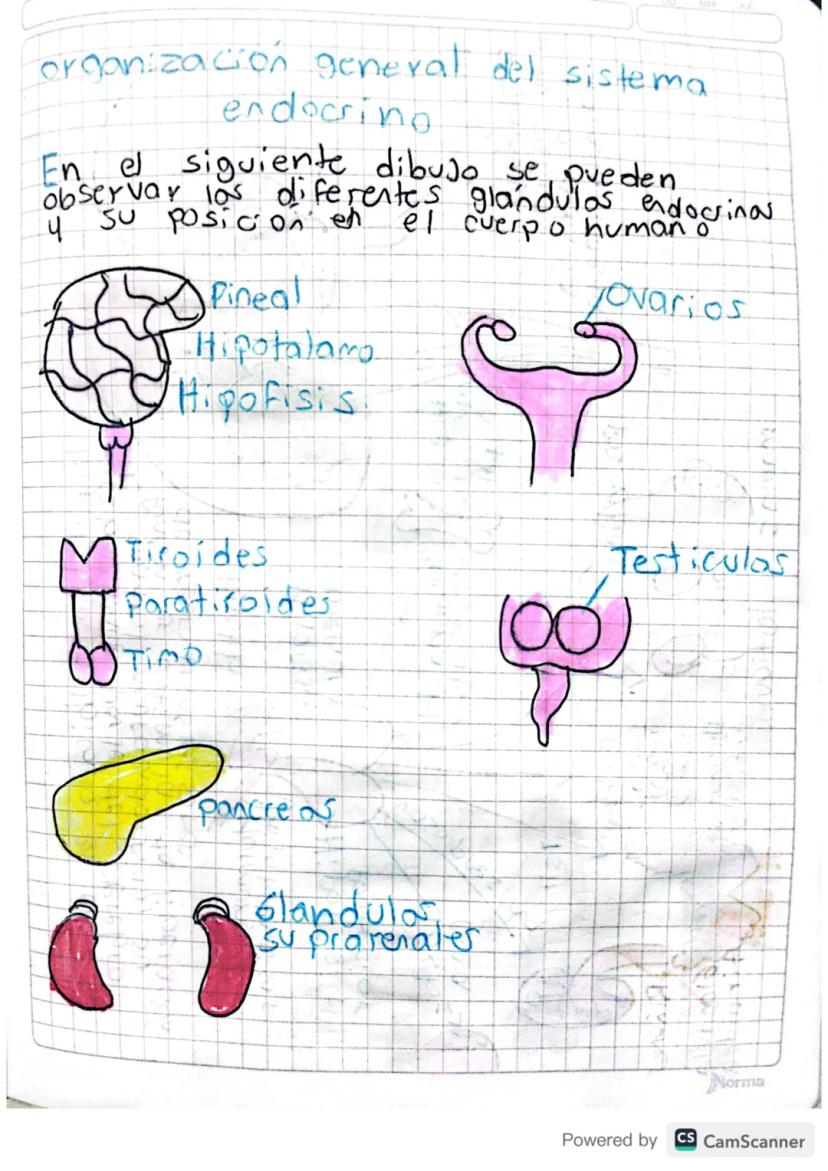 organización general del sistema
endocrino
En el siguiente dibujo se pueden
observar las diferentes glándulas endocrinas
y su posición en el cuerpo humano
Pineal
Hipotalamo
Hipofisis
Ovarios
Tiroides
paratiroides
Timo
Testiculos
pancreas
Glandulas
suprarenales
Norma
Powered by CS CamScanner